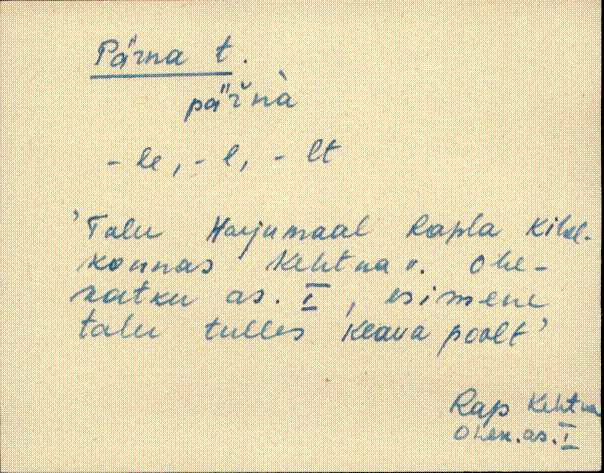 Pärna t.
päřnà
- le, - l, - lt
'Talu Harjumaal Rapla kihel-
konnas Kehtna v. Ohe-
katku as. I, esimene
talu tulles Keava poolt'
Rap Kehtna
Ohek. as. I